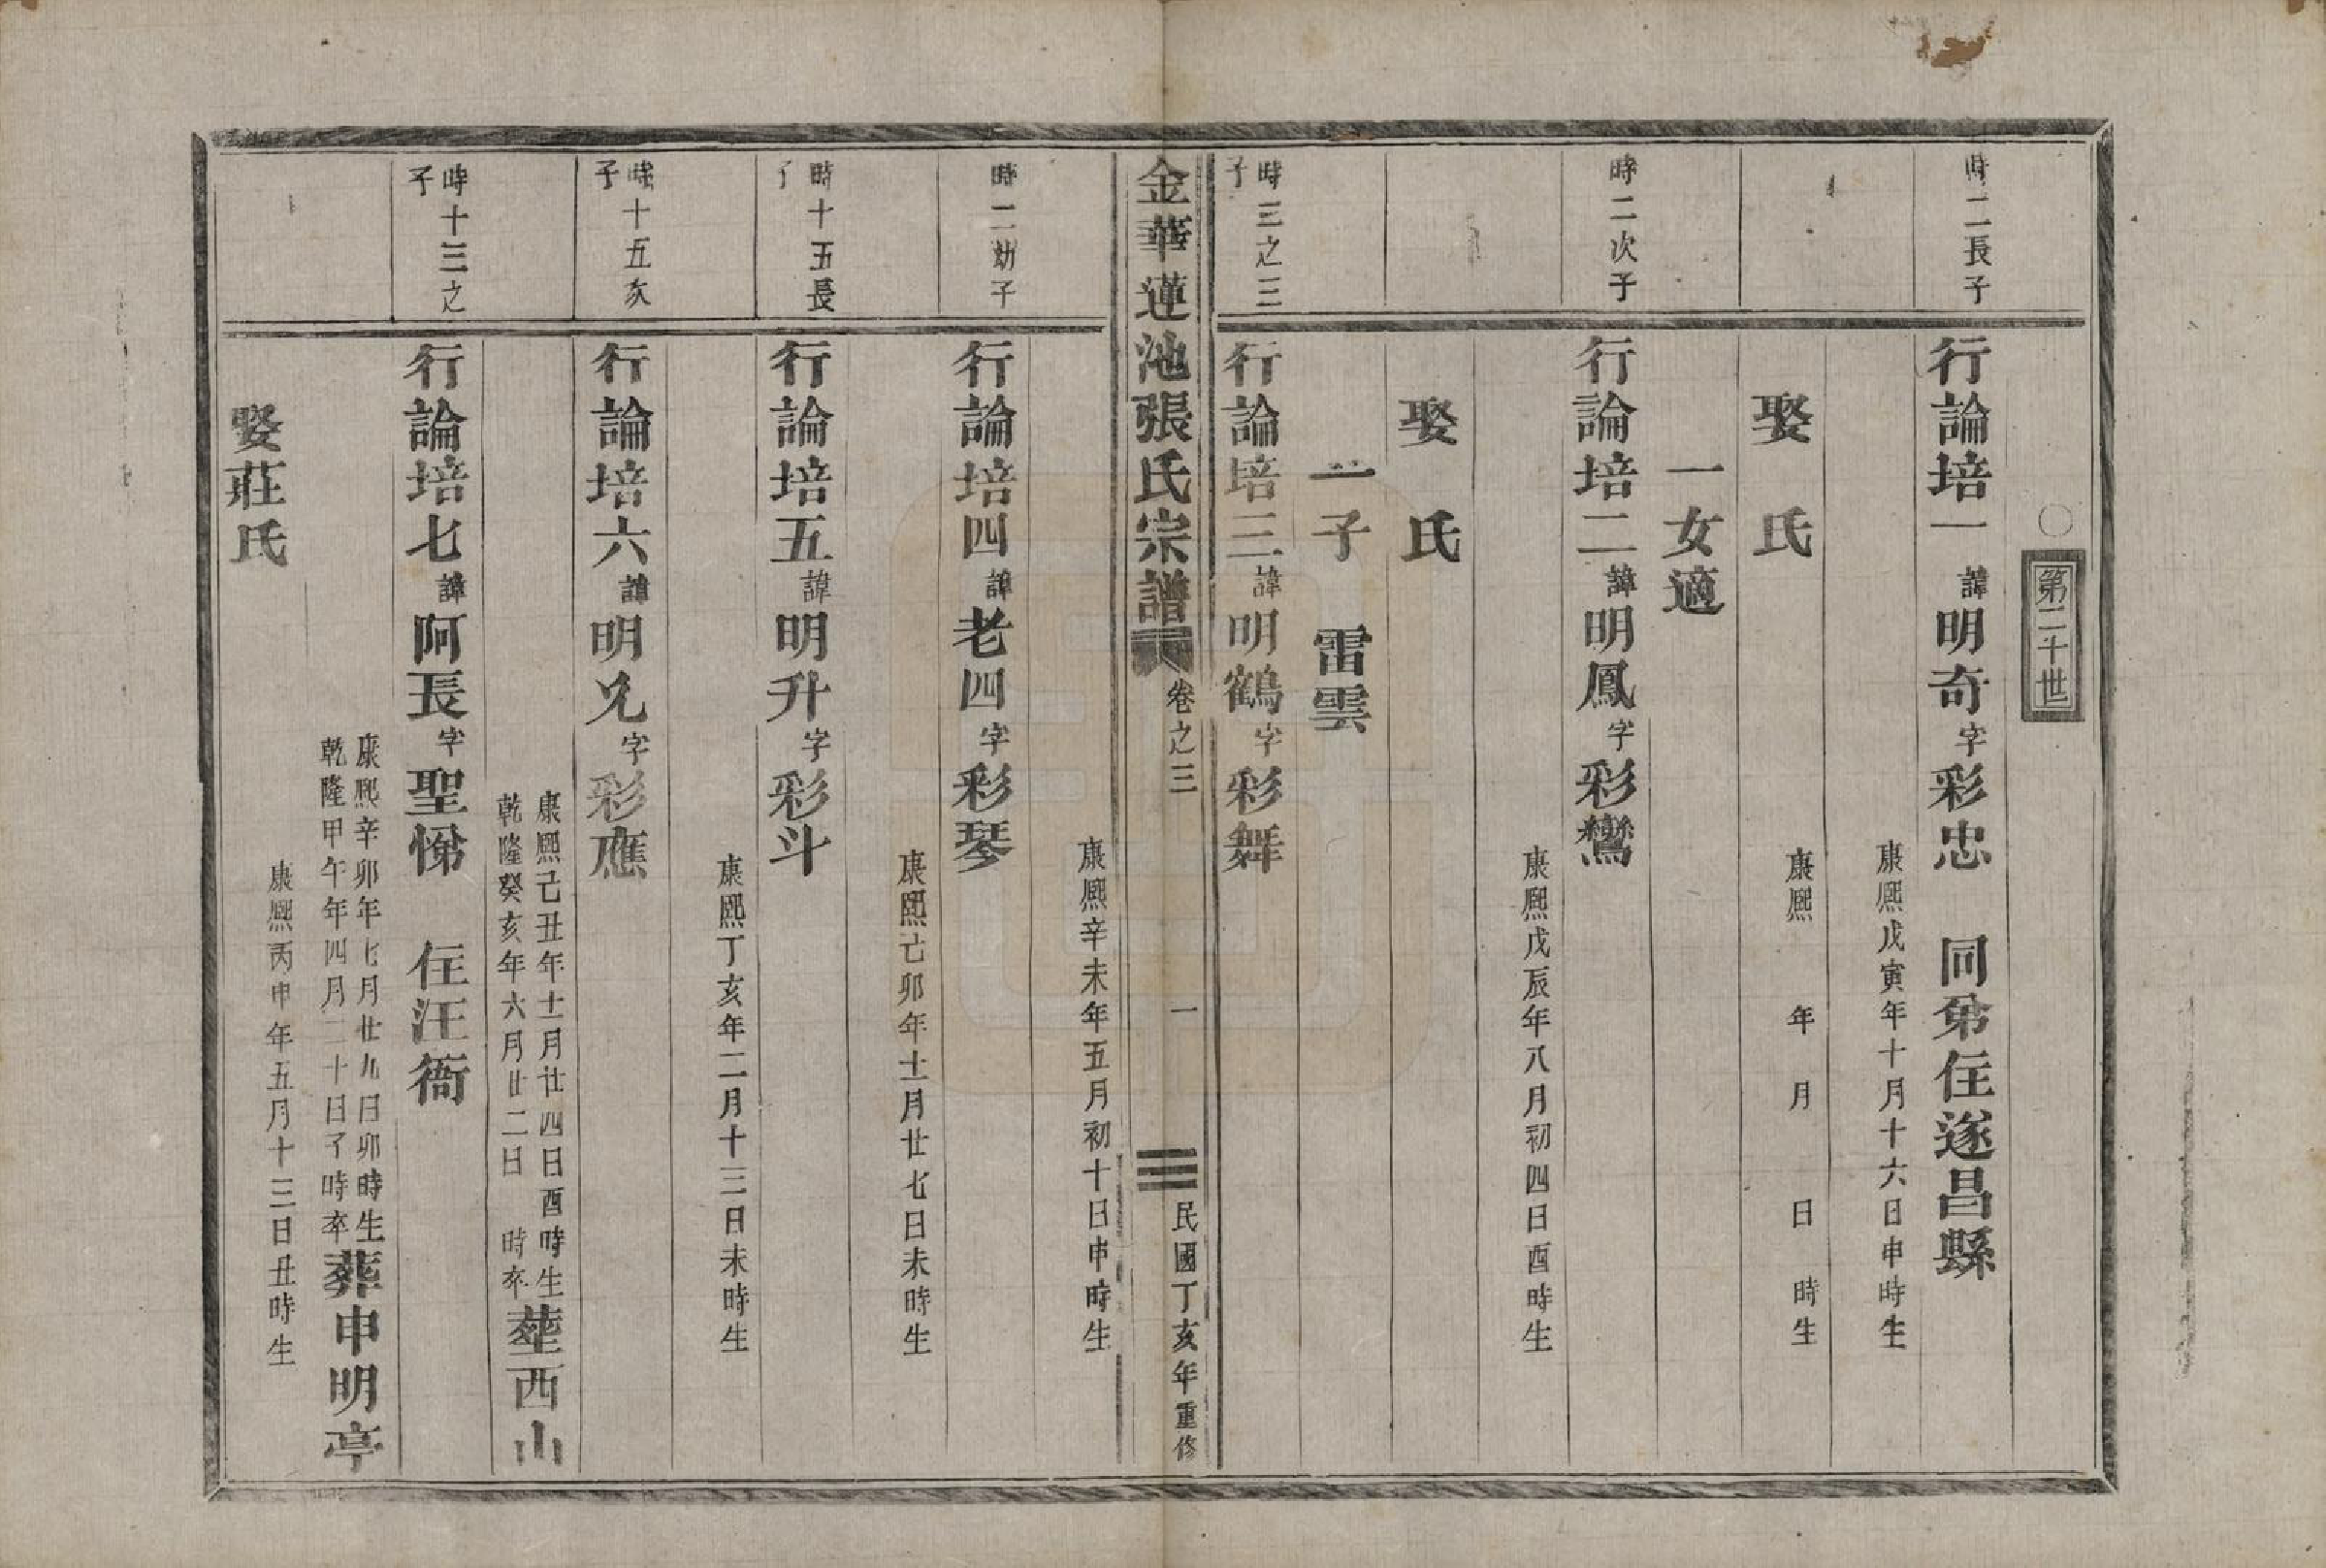 〇第二十世
時二長子
行論培一諱明奇字彩忠 同弟住遂昌縣
康熙戊寅年十月十六日申時生
娶 氏
康熙 年 月 日 時生
一女適
時二次子
行論培二諱明鳳字彩鸞
康熙戊辰年八月初四日酉時生
娶 氏
一子 雷雲
時三之三子
行論培三諱明鶴字彩舞
金華蓮池張氏宗譜 卷之三 一 民國丁亥年重修
康熙辛未年五月初十日申時生
時二幼子
行論培四諱老四字彩琴
康熙己卯年十一月廿七日未時生
時十五長子
行論培五諱明升字彩斗
康熙丁亥年二月十三日未時生
時十五次子
行論培六諱明兄字彩應
康熙己丑年十一月廿四日酉時生
乾隆癸亥年六月廿二日 時卒
塟西山
時十三之子
行論培七諱阿長字聖悌 住汪衙
康熙辛卯年七月廿九日卯時生
乾隆甲午年四月二十日子時卒
葬申明亭
娶莊氏
康熙丙申年五月十三日丑時生